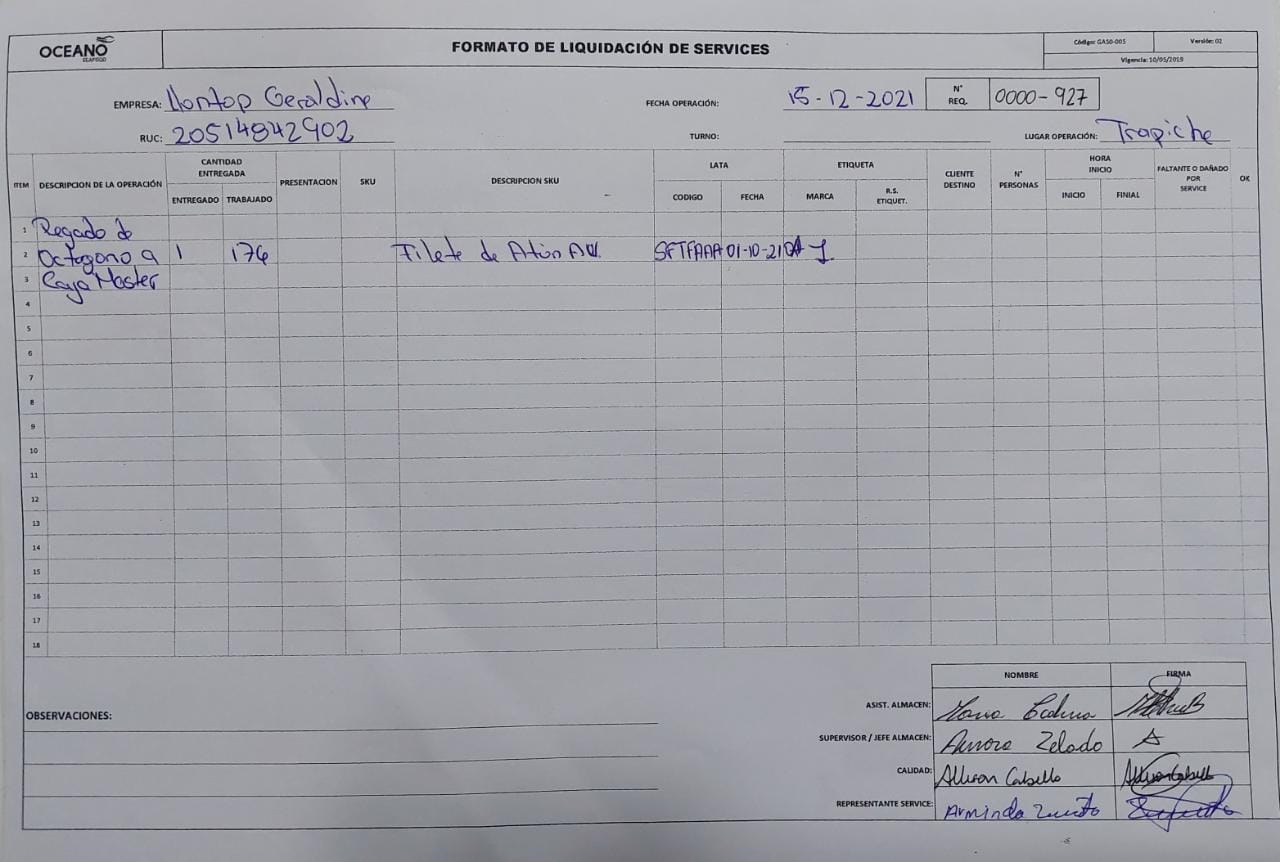 OCEANO
SEAFOOD
FORMATO DE LIQUIDACIÓN DE SERVICES
Código: GASG-005 Versión: 02
Vigencia: 10/05/2019
EMPRESA: Llontop Geraldine
FECHA OPERACIÓN: 15-12-2021
N° REQ. 0000-927
RUC: 20514842902
TURNO:
LUGAR OPERACIÓN: Trapiche
ITEM DESCRIPCION DE LA OPERACIÓN CANTIDAD ENTREGADA PRESENTACION SKU DESCRIPCION SKU LATA ETIQUETA CLIENTE DESTINO N° PERSONAS HORA INICIO FALTANTE O DAÑADO POR SERVICE OK
ENTREGADO TRABAJADO CODIGO FECHA MARCA R.S. ETIQUET. INICIO FINIAL
1 Pegado de
2 Octogono a 1 176 Filete de Atún SFTFAAA 01-10-21
3 Caja Master
4
5
6
7
8
9
10
11
12
13
14
15
16
17
18
NOMBRE FIRMA
OBSERVACIONES:
ASIST. ALMACEN:
SUPERVISOR / JEFE ALMACEN: Aurora Zelado
CALIDAD: Allison Cabello
REPRESENTANTE SERVICE: Arminda